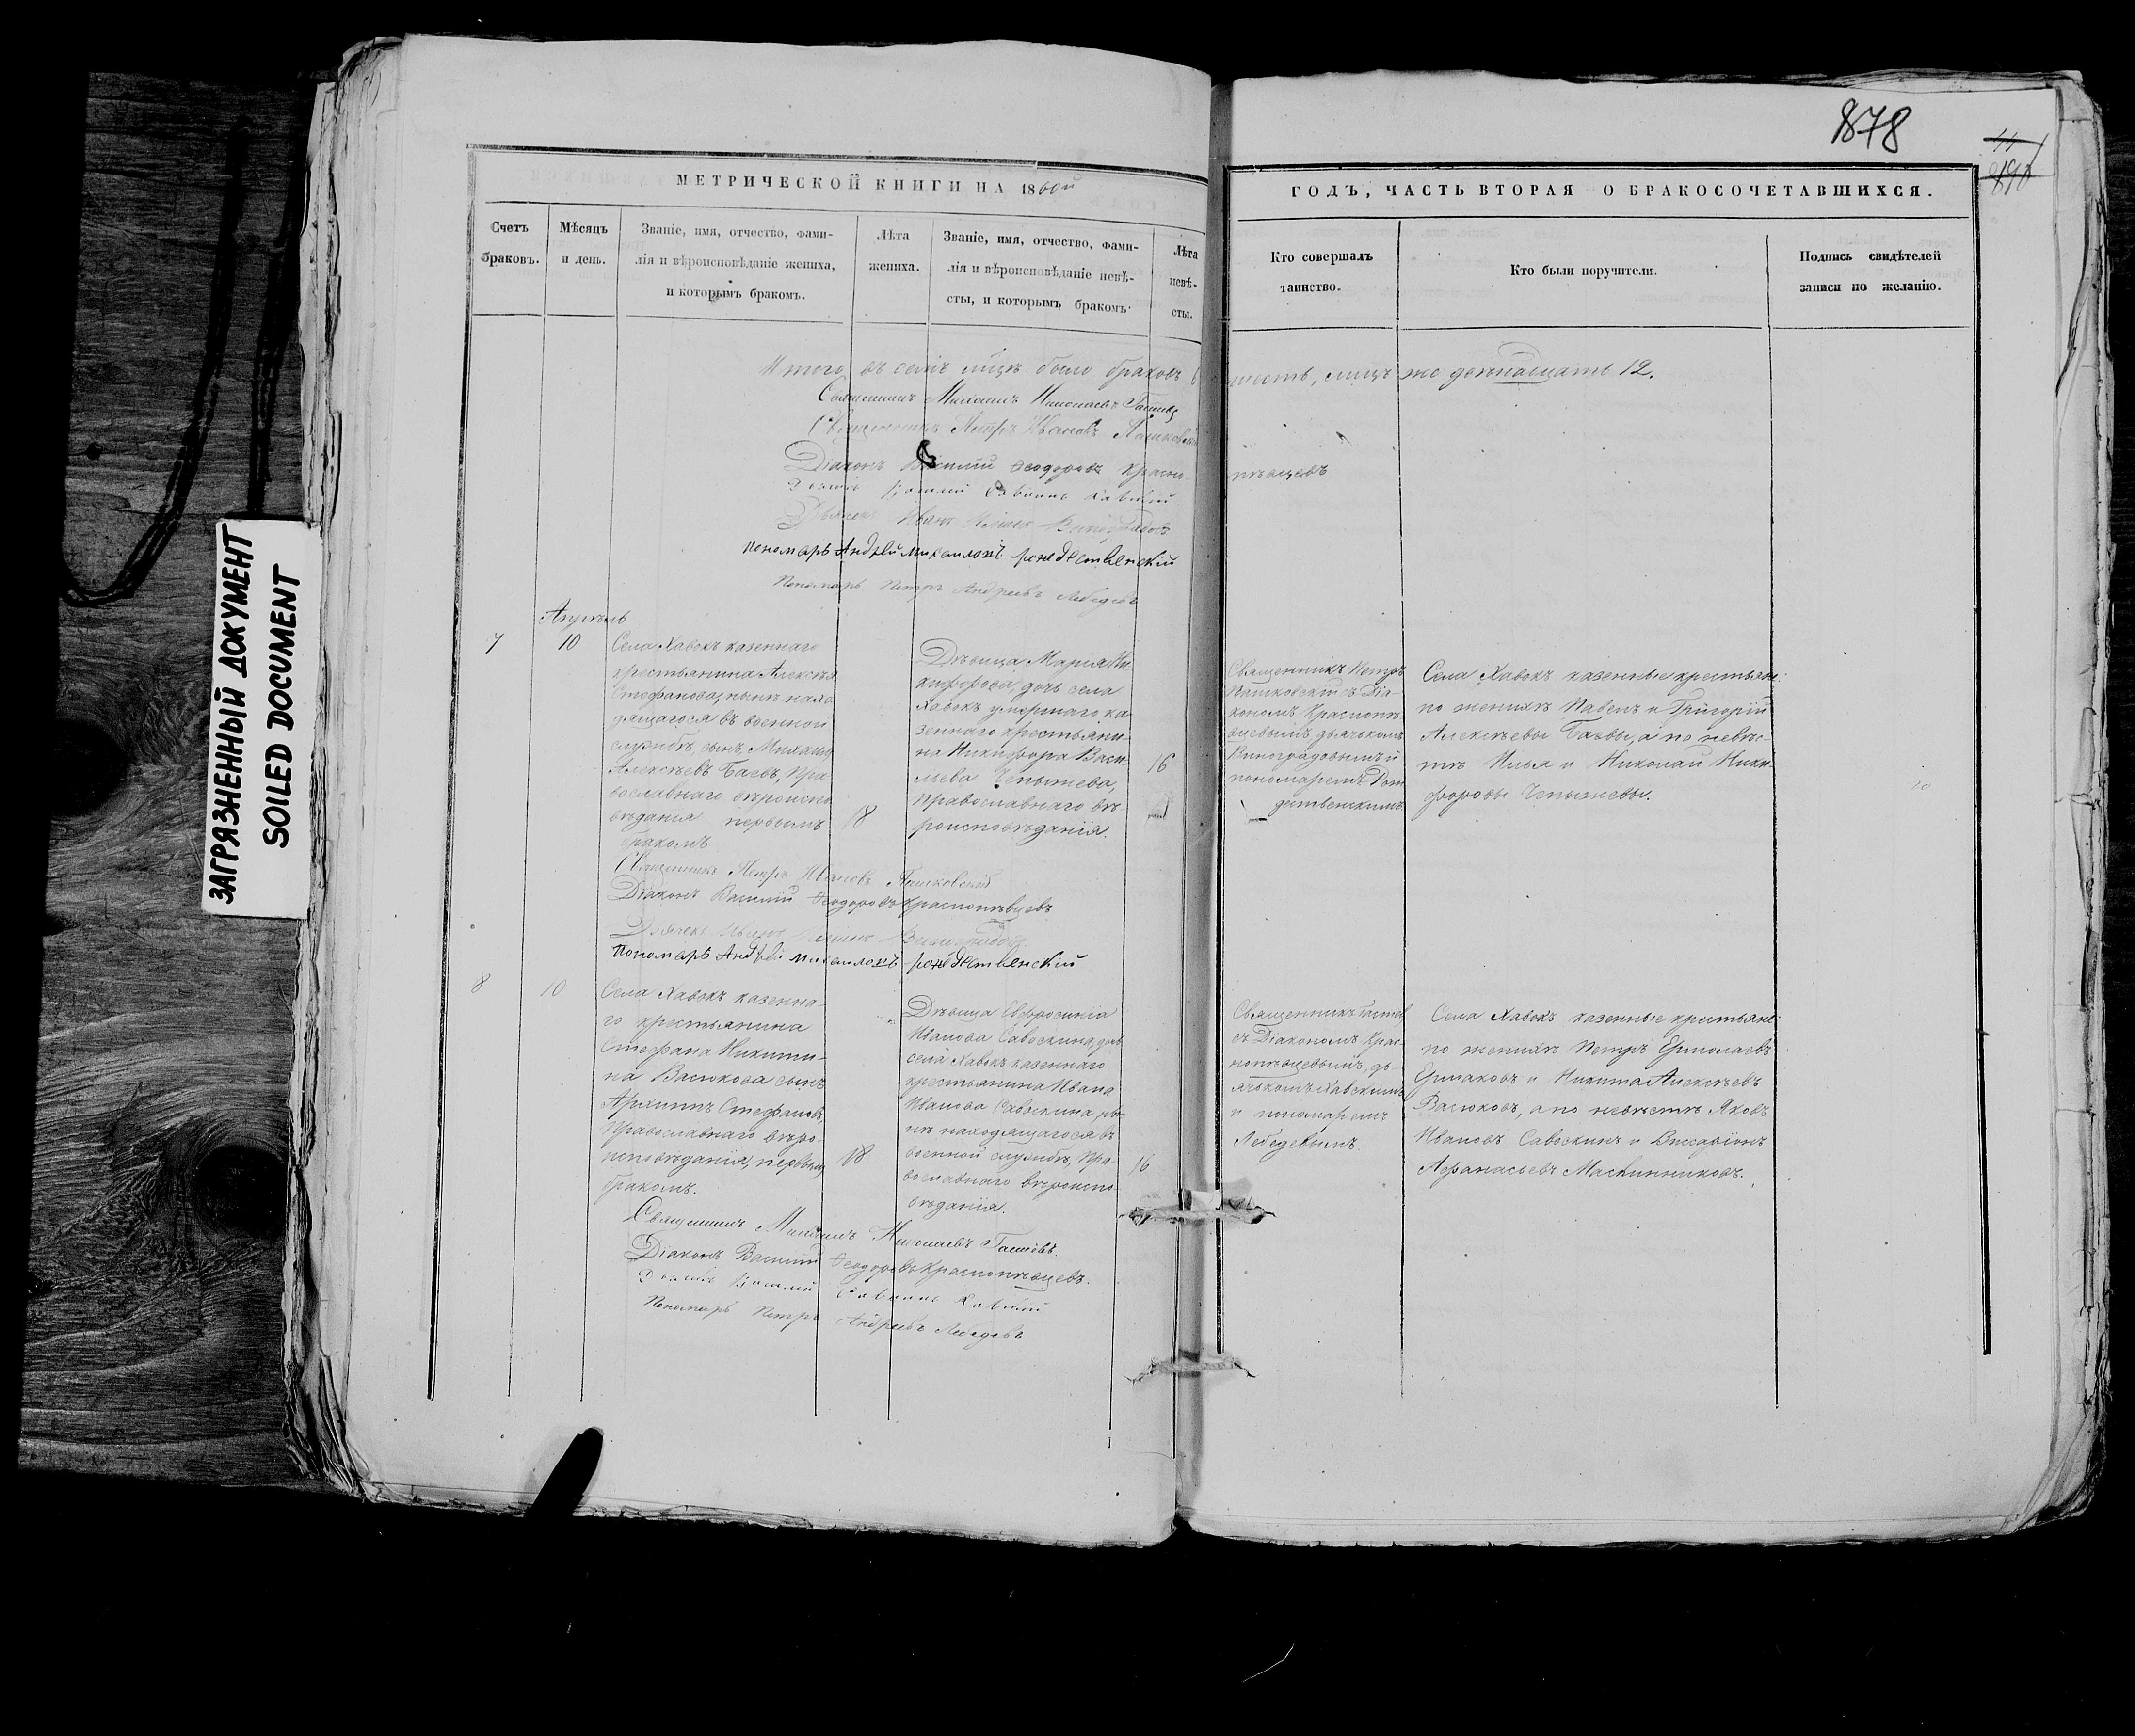 878
11
890
МЕТРИЧЕСКОЙ КНИГИ НА 1860й
ГОДЪ, ЧАСТЬ ВТОРАЯ О БРАКОСОЧЕТАВШИХСЯ.
Счетъ
браковъ.
Мѣсяцъ
и день.
Званіе, имя, отчество, фами-
лія и вѣроисповѣданіе жениха,
и которымъ бракомъ.
Лѣта
жениха.
Званіе, имя, отчество, фами-
лія и вѣроисповѣданіе невѣ-
сты, и которымъ бракомъ.
Лѣта
невѣ-
сты.
Кто совершалъ
таинство.
Кто были поручители.
Подпись свидѣтелей
записи по желанію.
Итого въ семъ было браковъ шесть, лицъ же двѣнадцать 12.
Священникъ Михаилъ Николаевъ
Священникъ Петръ Ивановъ Пашковскій
Діаконъ Василій Ѳеодоровъ Краснопѣвцевъ
Дьячекъ Иванъ Виноградовъ
Пономарь Андрей Михаиловъ рождественскій
Пономарь Петръ Андреевъ Лебедевъ
Апрѣль
7
10
Села Хавокъ казеннаго
крестьянина Алексѣя
Стефанова, нынѣ нахо-
дящагося въ военной
службѣ, сынъ Михаилъ
Алексѣевъ Баевъ, Пра-
вославнаго вѣроиспо-
вѣданія первымъ
бракомъ
18
Дѣвица Марія Ни-
кифорова, дочь села
Хавокъ умершаго ка-
зеннаго крестьяни-
на Никифора Васи-
льева Чепышева,
Православнаго вѣ-
роисповѣданія.
16
Священникъ Петръ
Пашковскій съ Діа-
кономъ Краснопѣ-
вцевымъ дьячкомъ
Виноградовымъ и
пономаремъ Рож-
дественскимъ
Села Хавокъ казенные крестьяне:
по женихѣ Павелъ и Григорій
Алексѣевы Баевы, а по невѣс-
тѣ Илья и Николай Ники-
форовы Чепышевы.
Священникъ Петръ Ивановъ Пашковскій
Діаконъ Василій Ѳеодоровъ Краснопѣвцевъ
Дьячекъ Иванъ Виноградовъ
Пономарь Андрей Михаиловъ рождественскій
8
10
Села Хавокъ казенна-
го крестьянина
Стефана Никити-
на Васюкова сынъ
Архиппъ Стефановъ,
Православнаго вѣро-
исповѣданія, первымъ
бракомъ.
18
Дѣвица Евфросинія
Иванова Савоскина, дочь
села Хавокъ казеннаго
крестьянина Ивана
Иванова Савоскина ны-
нѣ находящагося въ
военной службѣ, Пра-
вославнаго вѣроиспо-
вѣданія.
16
Священникъ
съ Діакономъ Крас-
нопѣвцевымъ, дь-
ячкомъ Хавскимъ
и пономаремъ
Лебедевымъ.
Села Хавокъ казенные крестьяне:
по женихѣ Петръ Ермолаевъ
Ермаковъ и Никита Алексѣевъ
Васюковъ, а по невѣстѣ Яковъ
Ивановъ Савоскинъ и Виссаріонъ
Афанасьевъ Маслинниковъ.
Священникъ Михаилъ Николаевъ
Діаконъ Василій Ѳеодоровъ Краснопѣвцевъ.
Пономарь Петръ Андреевъ Лебедевъ
ЗАГРЯЗНЕННЫЙ ДОКУМЕНТ
SOILED DOCUMENT